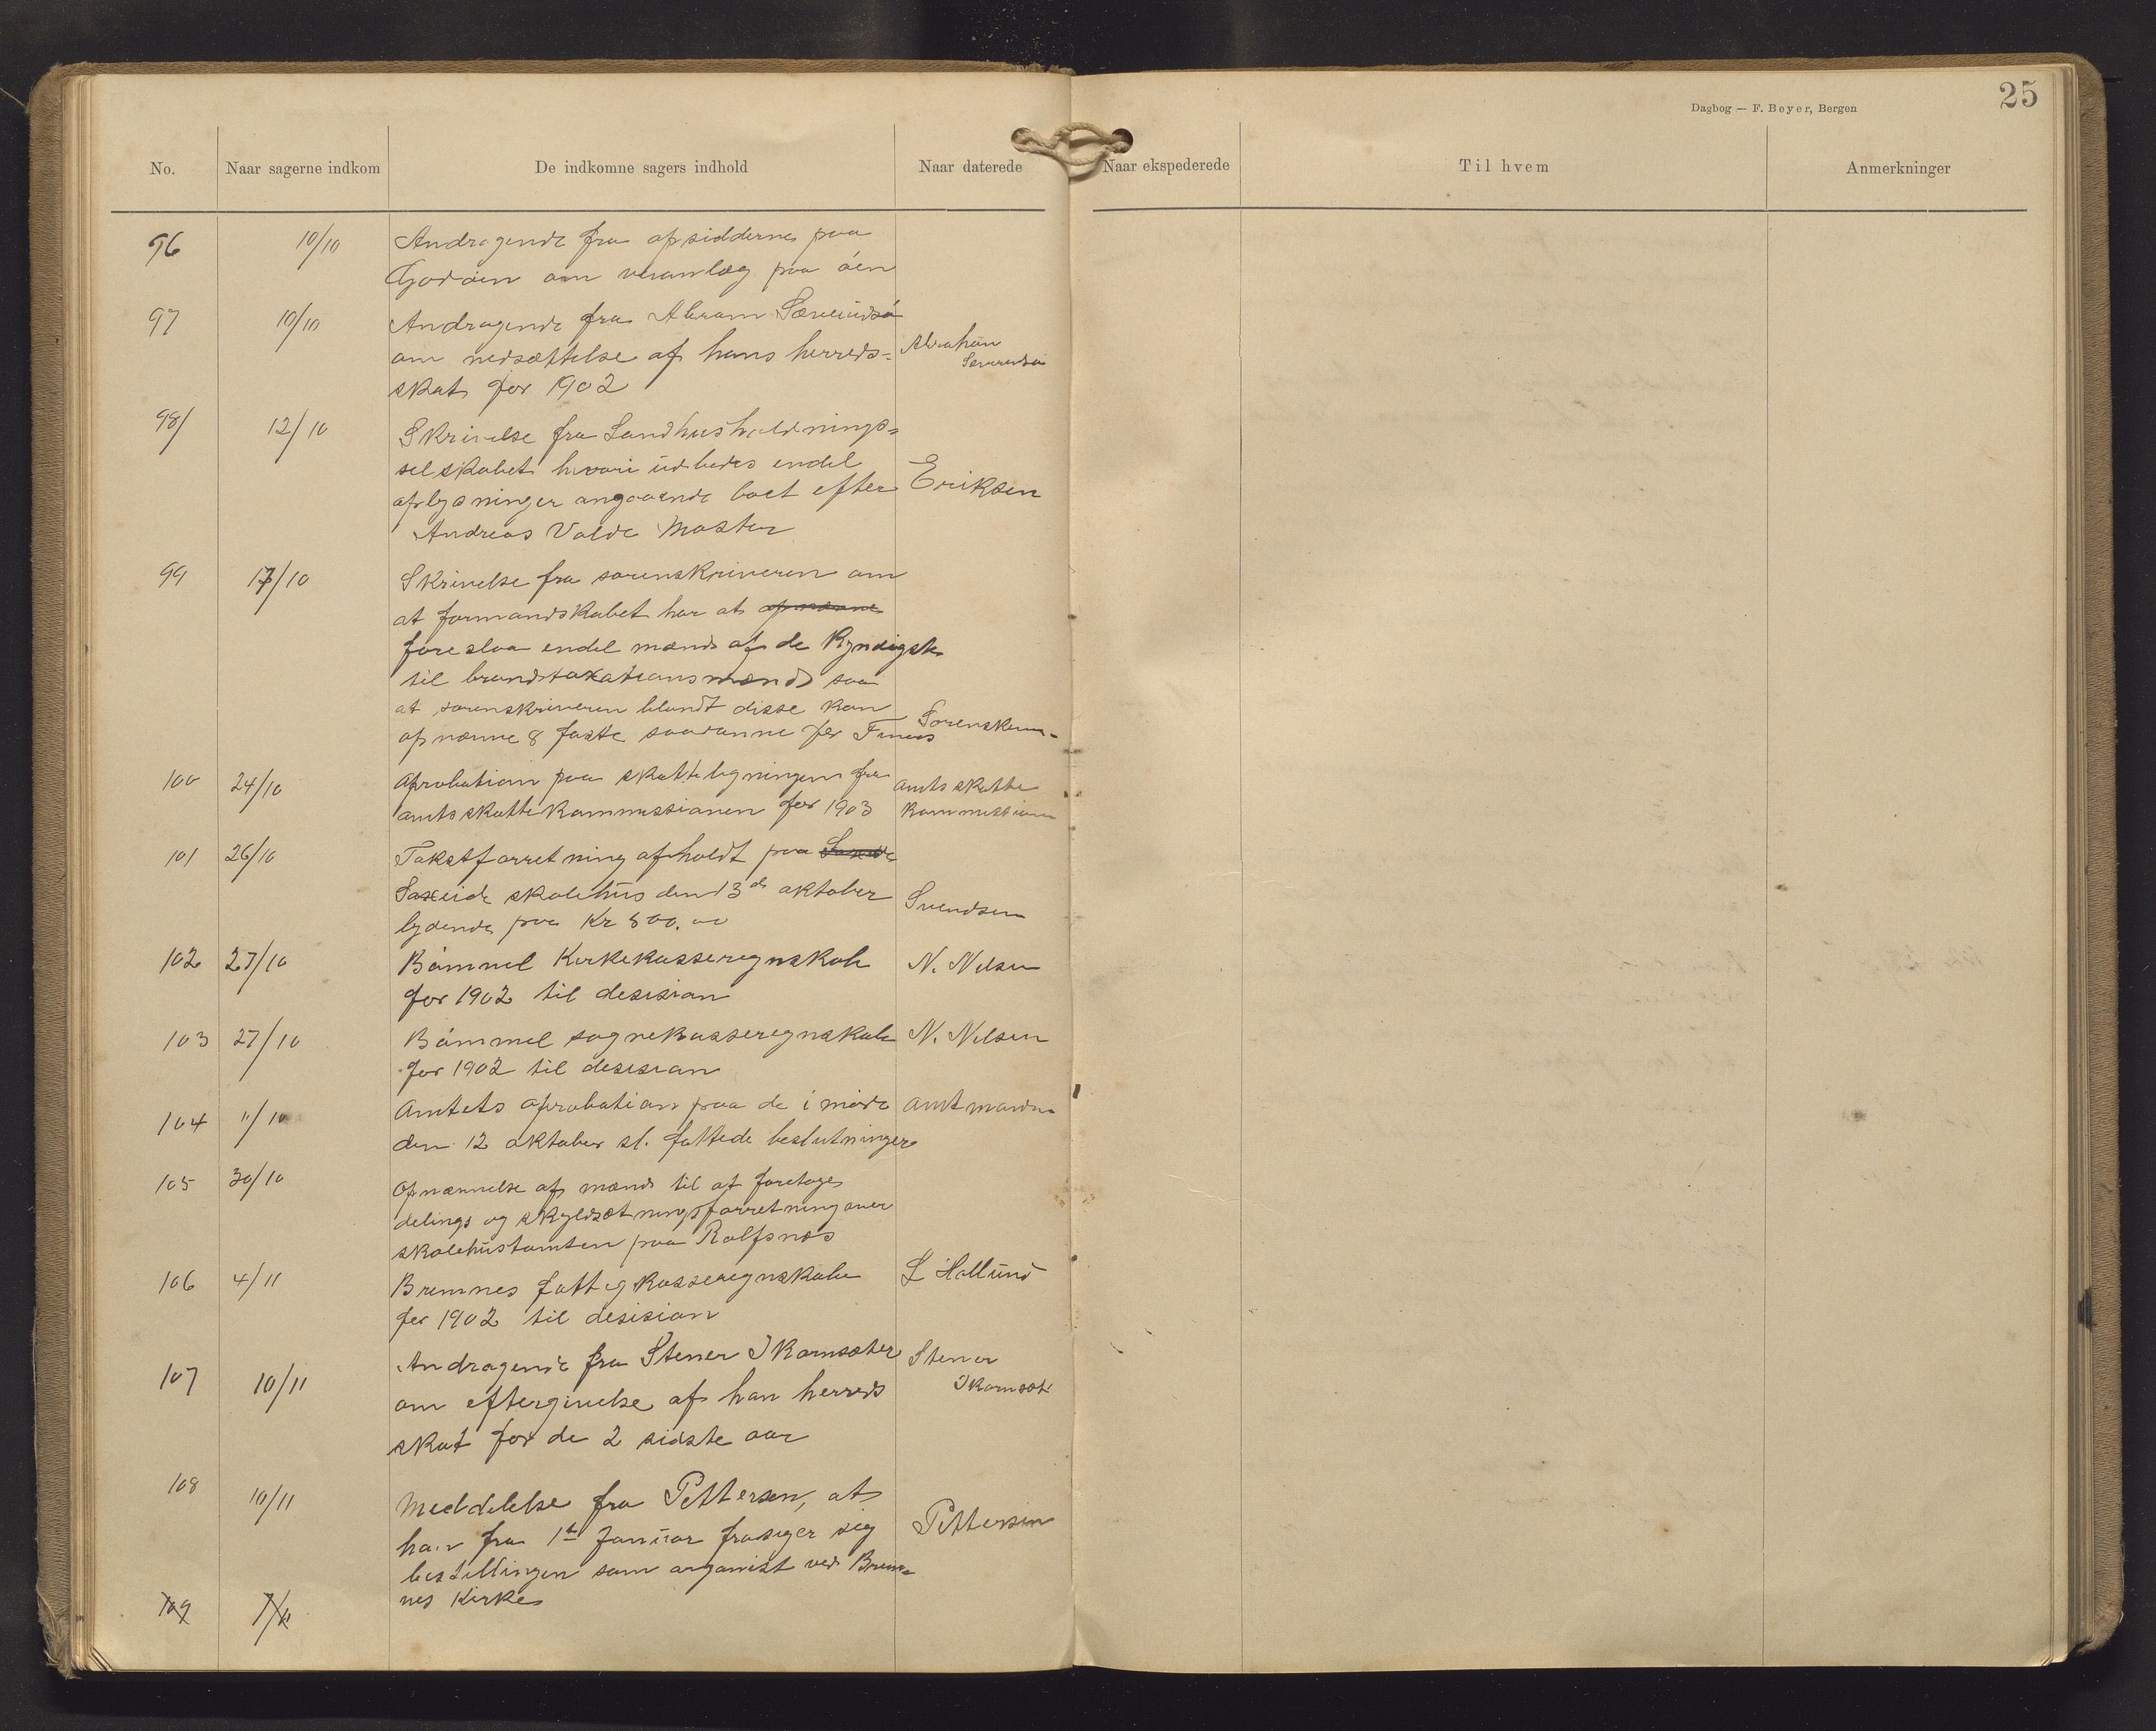 25
Dagbog — F. Beyer, Bergen
No. Naar sagerne indkom De indkomne sagers indhold Naar daterede Naar ekspederede Til hvem Anmerkninger
96 10/10 Andragende fra opsidderne paa
om paa öen
97 10/10 Andragende fra Abram
om nedsættelse af hans herreds-
skat for 1902
98/ 12/10 Skrivelse fra Landhusholdnings-
selskabet hvori udbedes endel
oplysninger angaaende boet efter Eriksen
Andreas Volde Moster
99 13/10 Skrivelse fra sorenskriveren om
at formandskabet har at opnævne
foreslaa endel mænd af de kyndigste
til brandtaxationsmænd saa
at sorenskriveren blandt disse kan
opnævne 8 faste saadanne for Finnes
100 24/10 Aprobation paa skatteligningen fra amtsskatte
amtsskattekommissionen for 1903 kommissionen
101 26/10 Takstforretning afholdt paa
Saxeide skolehus den 13de oktober Svendsen
lydende paa Kr 800.00
102 27/10 Bömmel Kirkekasseregnskab N. Nilsen
for 1902 til desisian
103 27/10 Bömmel sognekasseregnskab N. Nilsen
for 1902 til desisian
104 11/10 Amtets aprobation paa de i möde Amtmanden
den 12 oktober sl. fattede beslutninger
105 30/10 Opnævnelse af mænd til at foretage
delings og skyldsætningsforretning over
skolehustomten paa Rolfsnes
106 4/11 Bremnes fattigkasseregnskab L Hallund
for 1902 til desisian
107 10/11 Andragende fra Stener Ikornsæter Stener
om eftergivelse af han herreds Ikornsæt
skat for de 2 sidste aar
108 10/11 Meddelelse fra Pettersen, at
han fra 1st Januar frasiger sig Pettersen
bestillingen som organist ved Brem-
nes Kirke
109 7/11